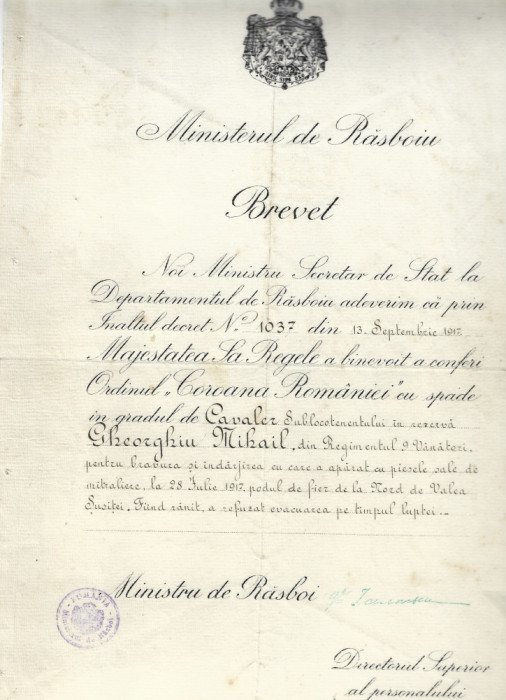 Ministerul de Răsboiu
Brevet
Noi Ministru Secretar de Stat la
Departamentul de Răsboiu adeverim că prin
Inaltul decret No 1037 din 13. Septembrie 1917
Majestatea Sa Regele a binevoit a conferi
Ordinul „Coroana României” cu spade
in gradul de Cavaler Sublocotenentului in rezervă
Gheorghiu Mihail, din Regimentul 9 Vânători,
pentru bravura și indârjirea cu care a apărat cu piesele sale de
mitraliere, la 28 Iulie 1917, podul de fier de la Nord de Valea
Șușiței. Fiind rănit, a refuzat evacuarea pe timpul luptei.-
Ministru de Răsboi
ROMÂNIA
Directorul Superior
al personalului